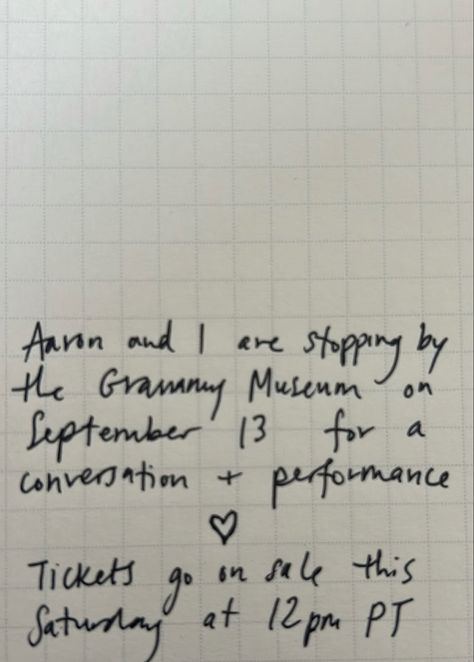 Aaron and I are stopping by
the Grammy Museum on
September 13 for a
conversation + performance
♡
Tickets go on sale this
Saturday at 12pm PT